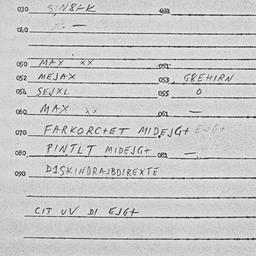 030 S/N8LK 033
040
050 MAX XX 051
052 MEJAX 053 GREHIRN
054 SEJXL 055 O
060 MAX XX 061 —
070 FARKORCTET MIDEJGT
080 PINTLT MIDEJGT 081 —
090 DISKINDRAJBDIREXTE
CIT UV DI EJGT